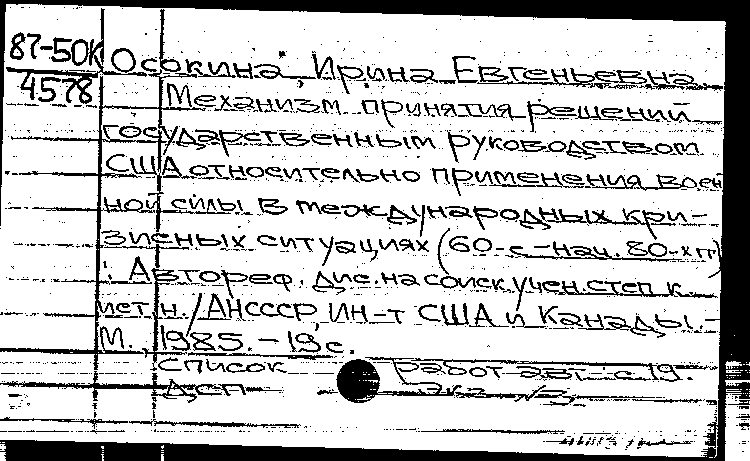 87-50К
4578
Осокина, Ирина Евгеньевна
Механизм принятия решений
государственным руководством
США относительно применения воен
ной силы в международных кри-
зисных ситуациях (60-е-нач. 80-х гг)
: Автореф. дис. на соиск. учен. степ. к.
ист. н. / АН СССР, Ин-т США и Канады. -
М., 1985. - 19 с.
Список работ авт.: с. 19.
ДСП экз.